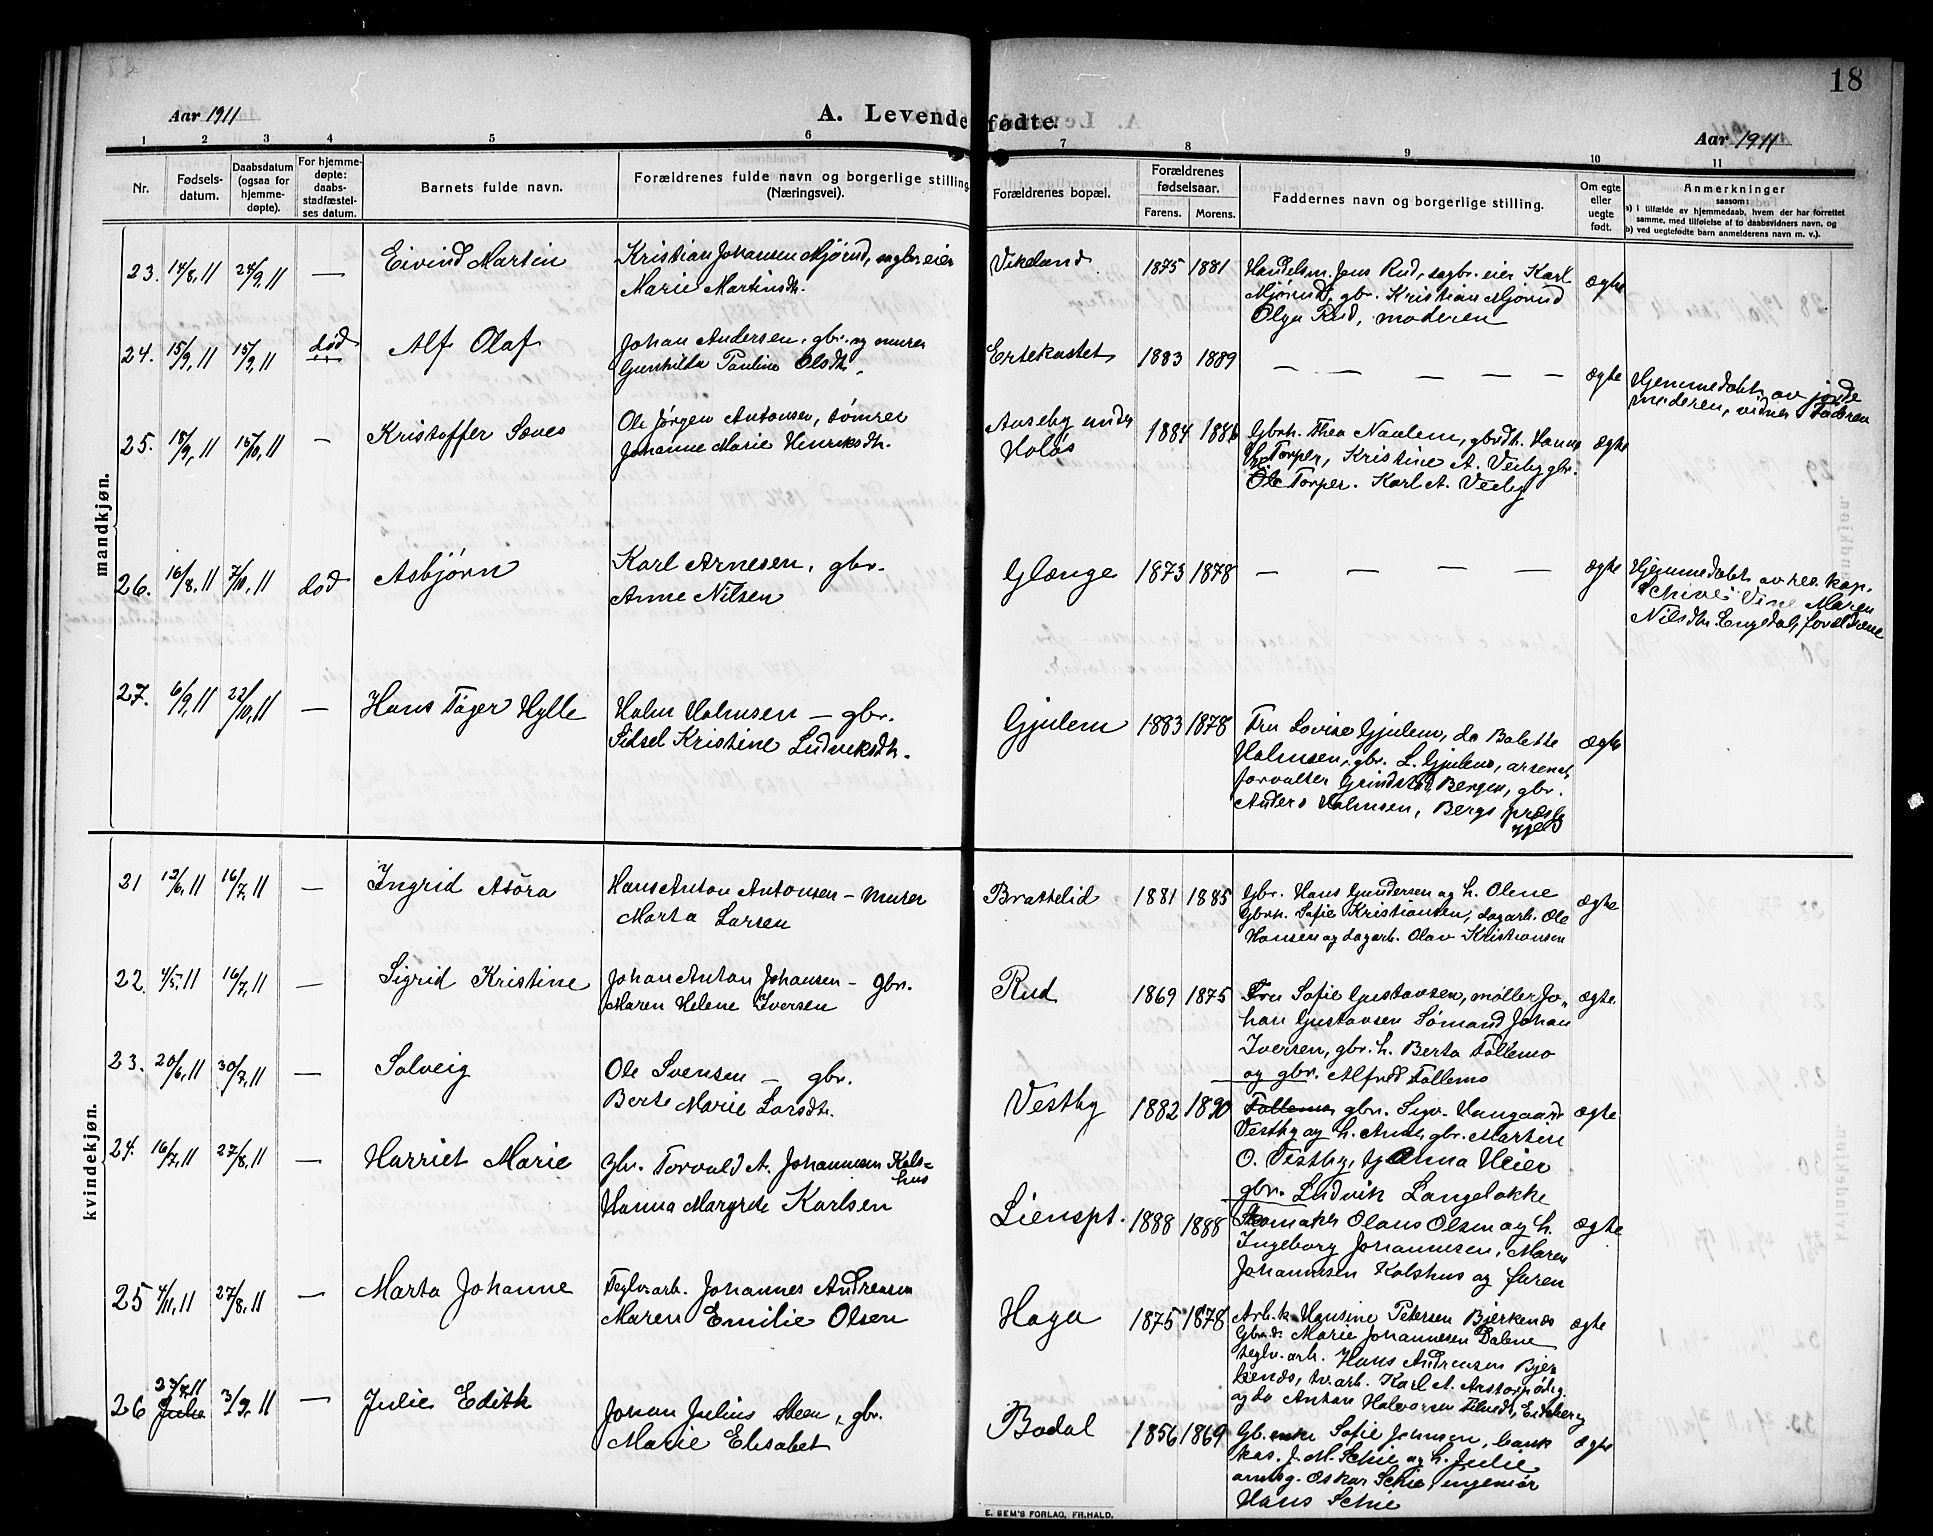 18
Aar 1911
A. Levendefødte.
Aar 1911
1 2 3 4 5 6 7 8 9 10 11
Nr.
Fødselsdatum.
Daabsdatum (ogsaa for hjemmedøpte).
For hjemmedøpte: daabsstadfæstelses datum.
Barnets fulde navn.
Forældrenes fulde navn og borgerlige stilling (Næringsvei).
Forældrenes bopæl.
Forældrenes fødselsaar.
Farens. Morens.
Faddernes navn og borgerlige stilling.
Om egte eller uegte født.
Anmerkninger
saasom:
a) i tilfælde av hjemmedaab, hvem der har forrettet samme, med tilføielse af to daabsvidners navn, og
b) ved uegtefødte barn anmelderens navn m. v.).
mandkjøn.
23. 14/8, 11 24/9, 11 — Eivind Martin
Kristian Johansen Mjørud, sagbr.eier
Marie Martinsdtr.
Vikeland 1875 1881
Handelsm. Jens Rud, sagbr.eier Karl
Mjørud, gbr. Kristian Mjørud
Olga Rud, moderen
ægte
24. 15/9, 11 15/9, 11 død Alf Olaf
Johan Andersen, gbr. og murer
Gunhilda Pauline Olsdtr.
Ertekastet 1883 1889
— — — — —
ægte
Hjemmedøbt av jorde
moderen, vidner Faderen
25. 18/9, 11 15/10, 11 — Kristoffer Sæves
Ole Jørgen Antonsen, tømrer
Johanne Marie Henriksdtr.
under
Holøs 1884
Gbrk. Thea Navlem, gbrdtr. Hanna
Torper, Kristine A. Veiby gbr.
Ole Torper. Karl A. Veiby
ægte
26. 16/8, 11 7/10, 11 død Asbjørn
Karl Arnesen, gbr.
Anne Nilsen
Glænge 1873 1878
— — — —
ægte
Hjemmedøbt av res. kap.
Schive Maren
Nilsdtr. Engedal, forældrene
27. 6/9, 11 22/10, 11 — Hans Tager Hylle
Halm Halmsen — gbr.
Sidsel Kristine Ludviksdtr.
Gjulem 1883 1878
Fru Lovise Gjulem, do Balette
Halmsen, gbr. L. Gjulem, arsenal
forvalter Grindsted Bergen, gbr.
Anders Halmsen, Bergs præste
gjeld
ægte
kvindekjøn.
21 12/6, 11 16/7, 11 — Ingrid Asora
Hans Anton Antonsen — murer
Marta Larsen
Brattelid 1881 1885
Gbr. Hans Gundersen og h. Oline
Gbrk. Sofie Kristiansen, dagarb. Ole
Hansen og dagarb. Olav Kristiansen
ægte
22. 4/5. 11 16/7, 11 — Sigrid Kristine
Johan Anton Johansen — Gbr.
Maren Helene Iversen
Rud 1869 1875
Fru Sofie Gustavsen, møller Jo-
han Gustavsen Sømand Johan
Iversen, gbr. h. Berta Tollemo
og gbr. Alfred Tollemo
ægte
23. 20/6, 11 30/7, 11 — Solveig
Ole Svensen — gbr.
Berte Marie Larsdtr.
Vestby 1882 1890
Tollemo, gbr. Sigv. Haugaard
Vestby og h. Anne, gbr. Martin
O. Vestby, Anna Heier
gbr. Ludvik Langeløkke
ægte
24. 16/7, 11 27/8, 11 — Harriet Marie
gbr. Torvald A. Johannesen Kols-
hus
Hanna Margrete Karlsen
Lienspl. 1888 1888
Skomaker Olaus Olsen og h.
Ingeborg Johannesen, Maren
Johannesen Kolshus og faren
ægte
25 4/11, 11 27/8, 11 — Marta Johanne
Teglv.arb. Johannes Andreasen
Maren Emilie Olsen
Haga 1875 1878
Arb.k. Hansine Petersen Bjerkenes
Gbr.d. Marie Johannesen Dalene
teglv. arb. Hans Andreasen Bjer
kenes, tv. arb. Karl A. Arstorpødeg.
og do Anton Halvorsen Eidsberg
ægte
26 27/7, 11 Julie 3/9, 11 — Julie Edith
Johan Julius Steen, gbr.
Marie Elisabet
Bodal 1856 1869
Gb. enke Sofie Jensen, bank
kas. J. M. Schie og h. Julie
amtsg. Oskar Schie ingeniør
Hans Schie
ægte
E. SEM'S FORLAG, FR.HALD.